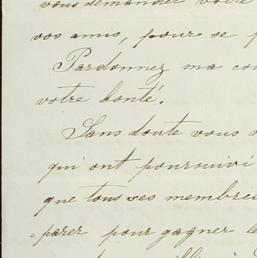 vous demander votre
vos amis, pour se p
Pardonnez ma con
votre bonté.
Sans doute vous a
qui ont poursuivi
que tous ses membres
-parer pour gagner le